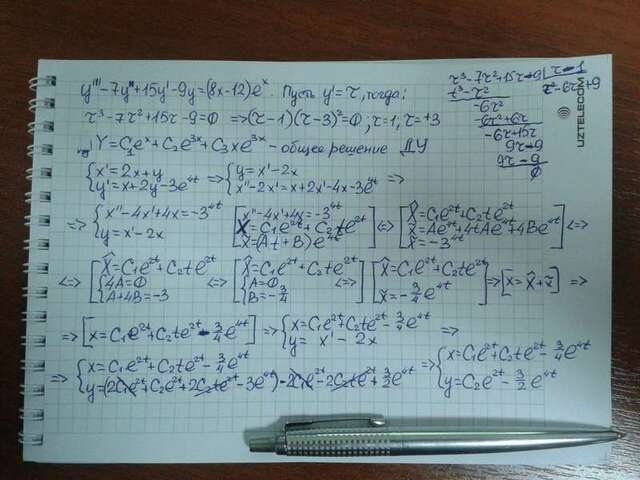 y''' - 7y'' + 15y' - 9y = (8x - 12)e^x. Пусть y' = τ, тогда:
τ³ - 7τ² + 15τ - 9 = 0 => (τ - 1)(τ - 3)² = 0; τ = 1, τ = +3
Y = C₁e^x + C₂e^3x + C₃xe^3x - общее решение ДУ
τ³ - 7τ² + 15τ - 9 | τ - 1
τ³ - τ² τ² - 6τ + 9
-6τ²
-6τ² + 6τ
-6τ + 15τ
9τ - 9
9τ - 9
0
UZTELECOM
{x' = 2x + y {y' = x + 2y - 3e^4t => {y = x' - 2x {x'' - 2x' = x + 2x' - 4x - 3e^4t =>
=> {x'' - 4x' + 4x = -3^4t {y = x' - 2x [x'' - 4x' + 4x = -3^4t [x̂ = C₁e^2t + C₂te^2t [x̃ = (At + B)e^4t <=> [x̂ = C₁e^2t + C₂te^2t [x̃ = Ae^4t + 4tAe^4t + 4Be^4t [x̃ = -3^4t <=>
<=> [x̂ = C₁e^2t + C₂te^2t {4A = 0 {A + 4B = -3 <=> [x̂ = C₁e^2t + C₂te^2t {A = 0 {B = -3/4 [x̂ = C₁e^2t + C₂te^2t [x̃ = -3/4 e^4t => [x = x̂ + x̃] =>
=> [x = C₁e^2t + C₂te^2t - 3/4 e^4t] => {x = C₁e^2t + C₂te^2t - 3/4 e^4t {y = x' - 2x =>
=> {x = C₁e^2t + C₂te^2t - 3/4 e^4t {y = (2C₁e^2t + C₂e^2t + 2C₂te^2t - 3e^4t) - 2C₁e^2t - 2C₂te^2t + 3/2 e^4t => {x = C₁e^2t + C₂te^2t - 3/4 e^4t {y = C₂e^2t - 3/2 e^4t